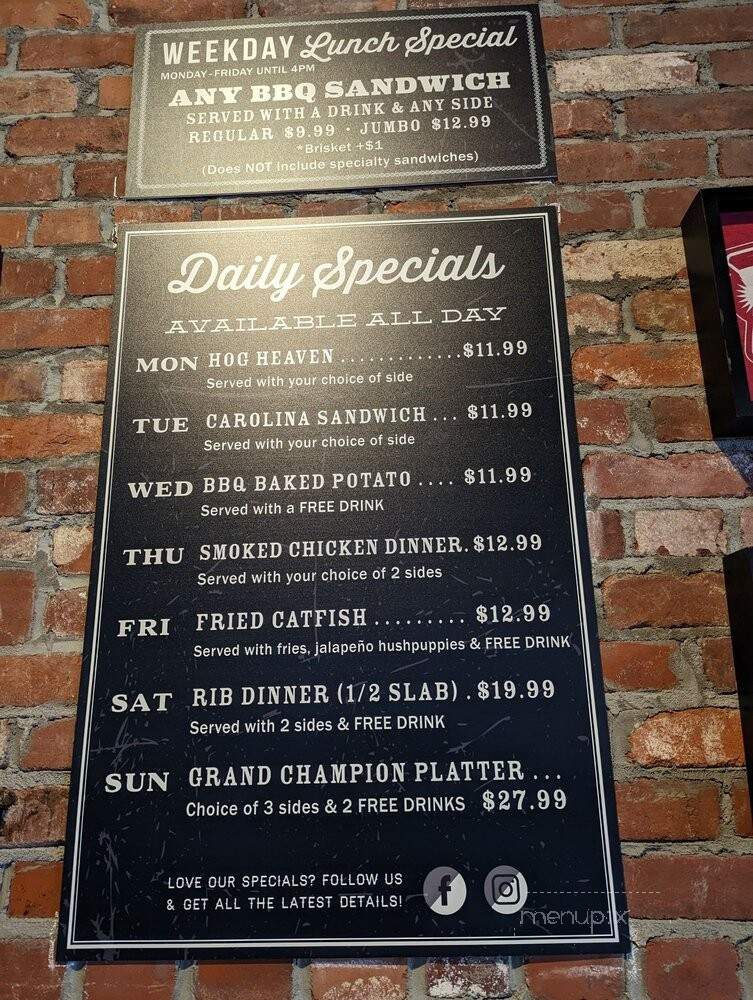 WEEKDAY Lunch Special
MONDAY-FRIDAY UNTIL 4PM
ANY BBQ SANDWICH
SERVED WITH A DRINK & ANY SIDE
REGULAR $9.99 · JUMBO $12.99
*Brisket +$1
(Does NOT include specialty sandwiches)
Daily Specials
AVAILABLE ALL DAY
MON HOG HEAVEN .............$11.99
Served with your choice of side
TUE CAROLINA SANDWICH ... $11.99
Served with your choice of side
WED BBQ BAKED POTATO .... $11.99
Served with a FREE DRINK
THU SMOKED CHICKEN DINNER. $12.99
Served with your choice of 2 sides
FRI FRIED CATFISH ......... $12.99
Served with fries, jalapeño hushpuppies & FREE DRINK
SAT RIB DINNER (1/2 SLAB) . $19.99
Served with 2 sides & FREE DRINK
SUN GRAND CHAMPION PLATTER ...
Choice of 3 sides & 2 FREE DRINKS $27.99
LOVE OUR SPECIALS? FOLLOW US
& GET ALL THE LATEST DETAILS!
menupix